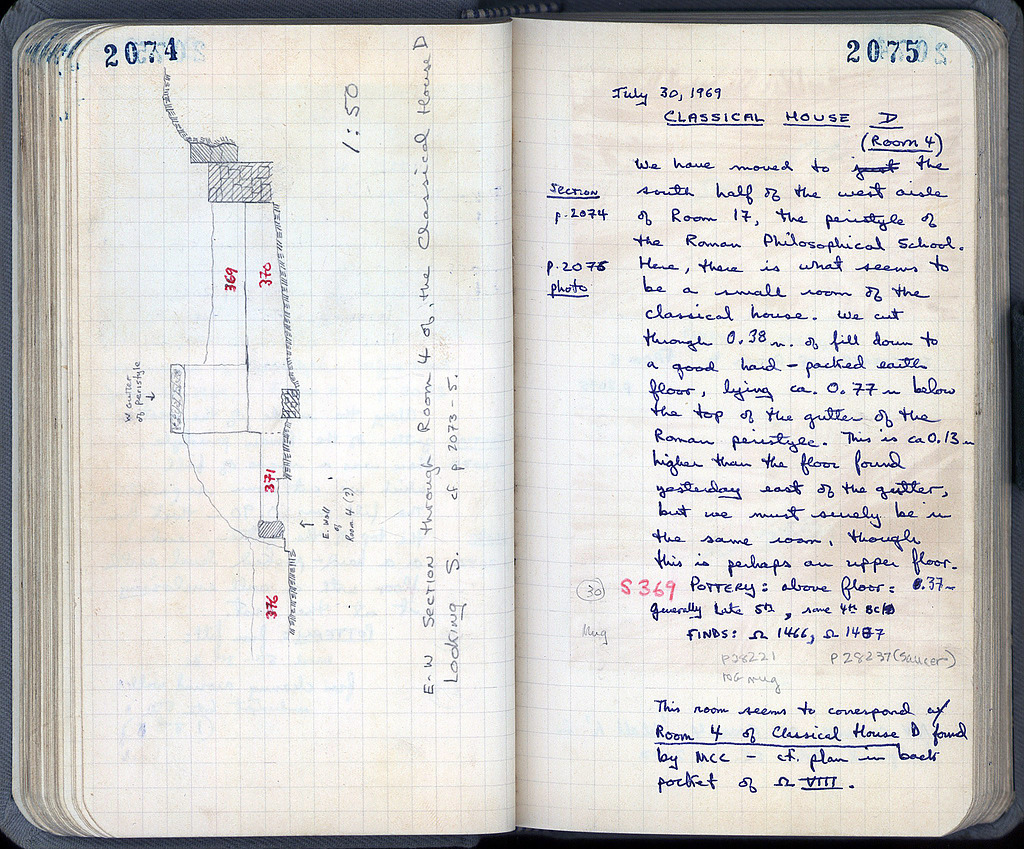 2074
1:50
E-W Section through Room 4 of the Classical House D
Looking S. cf p. 2073-5.
W gutter
of peristyle
369
370
371
E. Wall
of
Room 4 (?)
376
2075
July 30, 1969
CLASSICAL HOUSE D
(Room 4)
We have moved to just the
SECTION
p. 2074
south half of the west aisle
of Room 17, the peristyle of
the Roman Philosophical School.
p. 2076
photo
Here, there is what seems to
be a small room of the
classical house. We cut
through 0.38 m. of fill down to
a good hard-packed earth
floor, lying ca. 0.77 m below
the top of the gutter of the
Roman peristyle. This is ca 0.13 m
higher than the floor found
yesterday east of the gutter,
but we must surely be in
the same room, though
this is perhaps an upper floor.
30
S 369 POTTERY: above floor: 0.37-
generally late 5th, some 4th BC
Mug
FINDS: Ω 1466, Ω 1467
P28221 P 28237 (saucer)
mug
This room seems to correspond w/
Room 4 of Classical House D found
by MCC - cf. plan in back
pocket of Ω VIII.